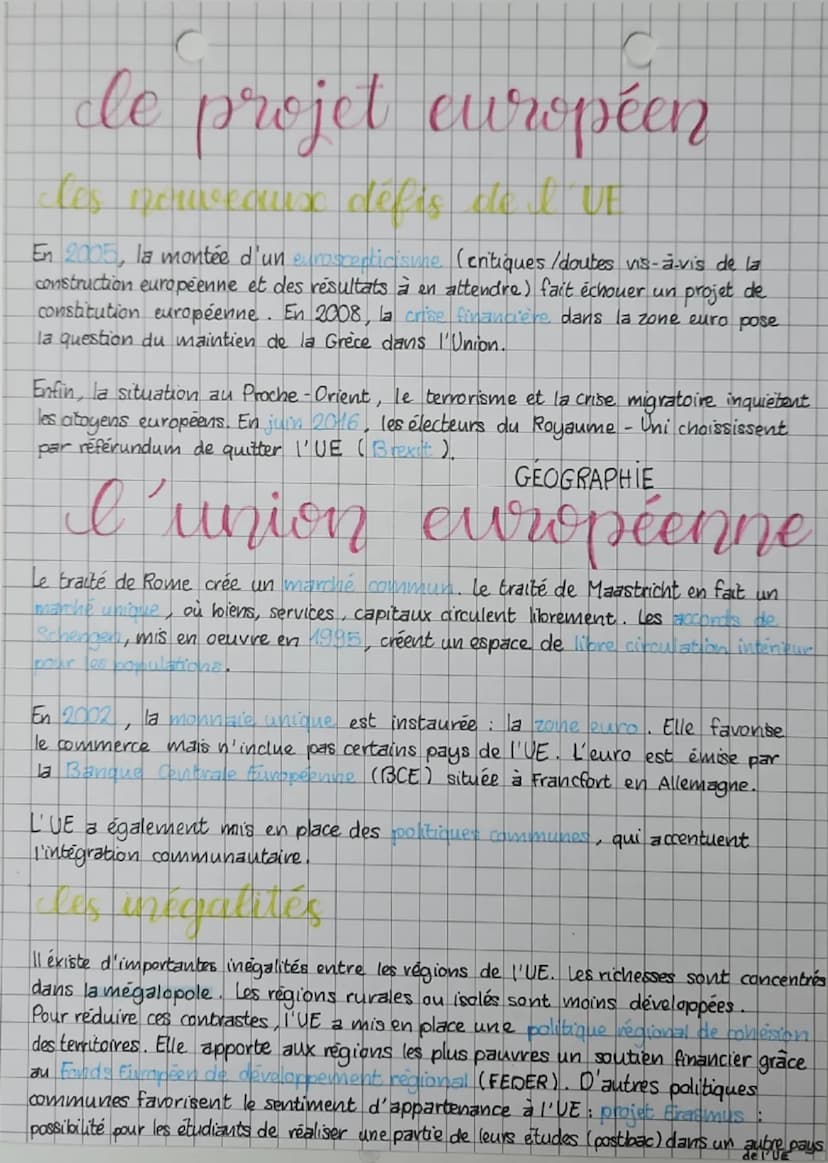 Le projet européen
Les nouveaux défis de l'UE
En 2005, la montée d'un euroscepticisme (critiques/doutes vis-à-vis de la
construction européenne et des résultats à en attendre) fait échouer un projet de
constitution européenne. En 2008, la crise financière dans la zone euro pose
la question du maintien de la Grèce dans l'Union.
Enfin, la situation au Proche-Orient, le terrorisme et la crise migratoire inquiètent
les citoyens européens. En juin 2016, les électeurs du Royaume-Uni choississent
par référundum de quitter l'UE (Brexit).
GÉOGRAPHIE
L'union européenne
Le traité de Rome crée un marché commun. Le traité de Maastricht en fait un
marché unique, où biens, services, capitaux circulent librement. Les accords de
Schengen, mis en oeuvre en 1995, créent un espace de libre circulation intérieur
pour les populations.
En 2002, la monnaie unique est instaurée : la zone euro. Elle favorise
le commerce mais n'inclue pas certains pays de l'UE. L'euro est émise par
la Banque Centrale Européenne (BCE) située à Francfort en Allemagne.
L'UE a également mis en place des politiques communes, qui accentuent
l'intégration communautaire.
Les inégalités
Il éxiste d'importantes inégalités entre les régions de l'UE. Les richesses sont concentrés
dans la mégalopole. Les régions rurales ou isolés sont moins développées.
Pour réduire ces contrastes, l'UE a mis en place une politique régional de cohésion
des territoires. Elle apporte aux régions les plus pauvres un soutien financier grâce
au Fonds Européen de développement régional (FEDER). D'autres politiques
communes favorisent le sentiment d'appartenance à l'UE : projet Erasmus :
possibilité pour les étudiants de réaliser une partie de leurs études (postbac) dans un autre pays
de l'UE